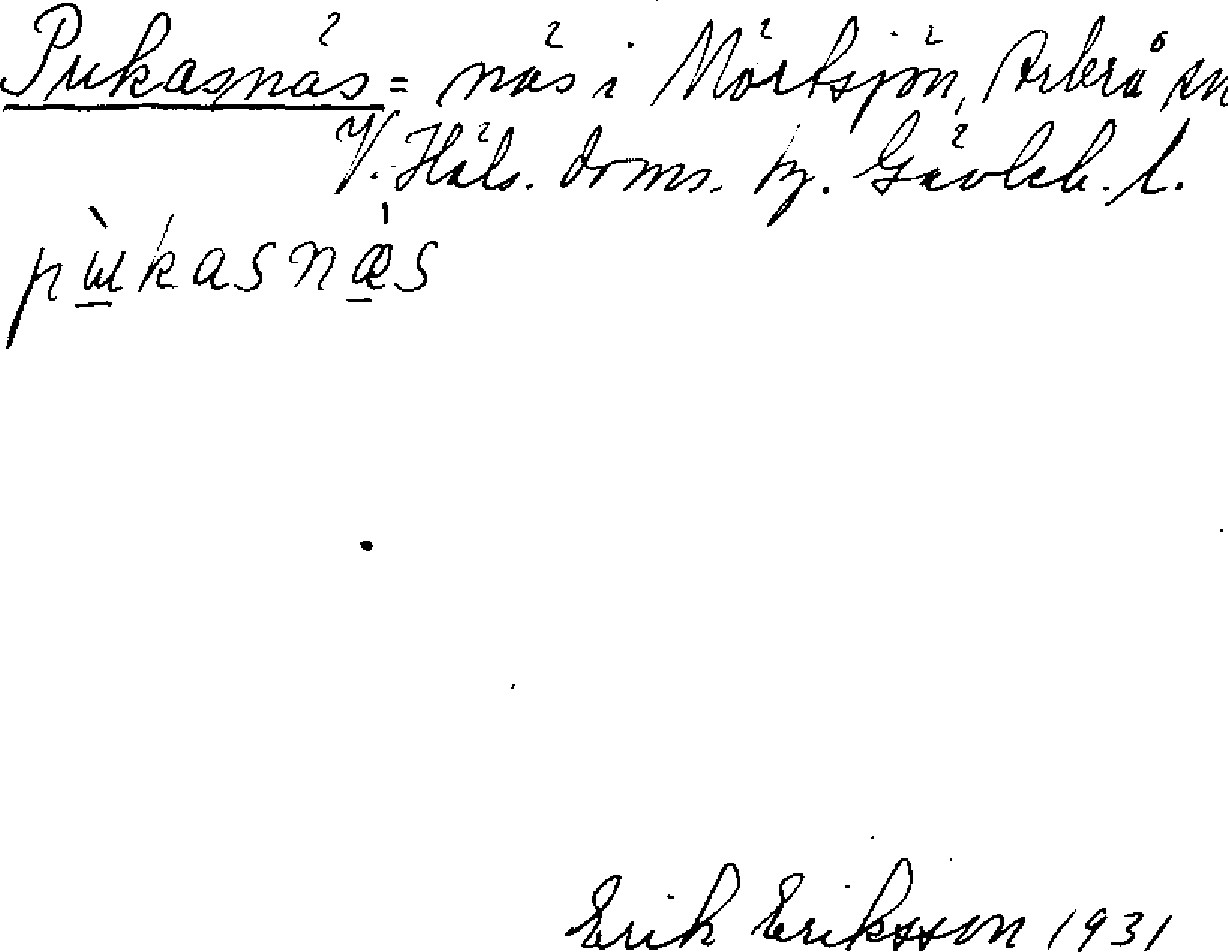 Pukasnäs = näs i Mörtsjön, Arbrå sn
V. Häls. doms. hg. Gävleb. l.
pɯ̀kasnæ̍s
Erik Eriksson 1931